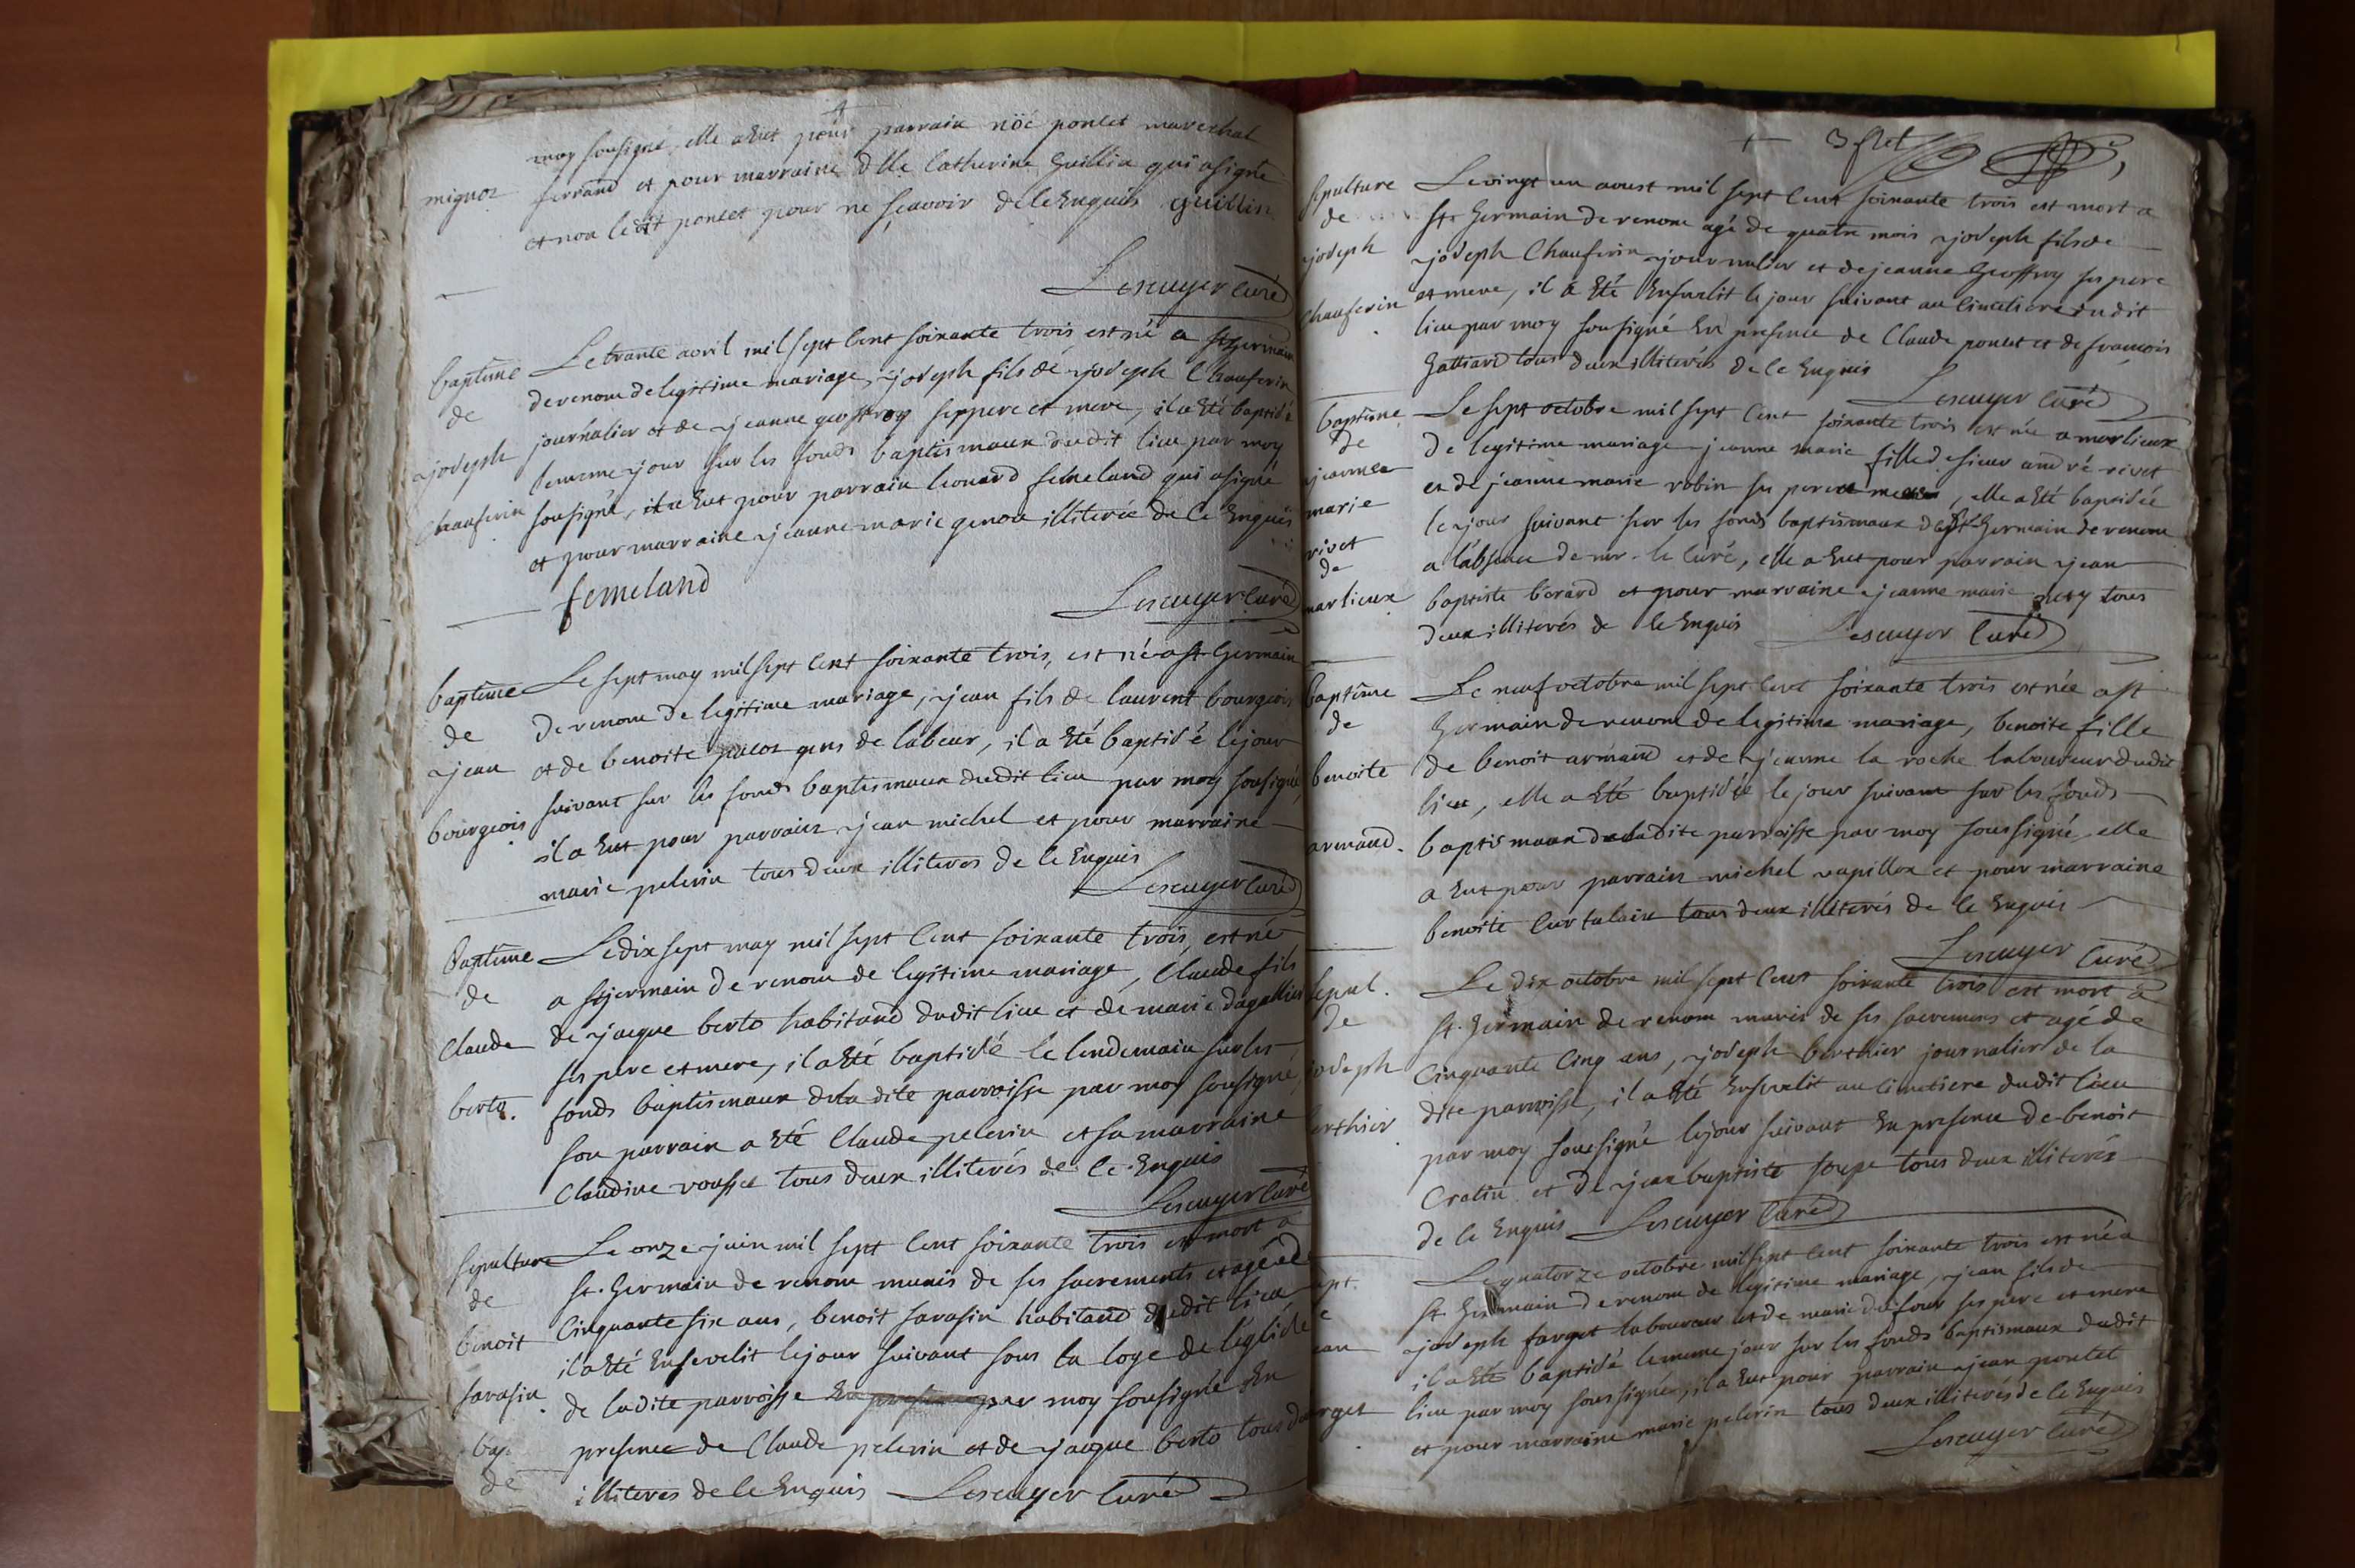 moy sousigné, elle a Eut pour parrain nöé poncet marechal
mignot
ferrand et pour marraine dlle Catherine Guillin qui a signé
et non ledit poncet pour ne sçavoir de ce Enquis guillin
Lescuyer Curé
baptême
de
joseph
Chauferin
Le trante avril mil sept Cent soixante trois est né a st germain
de renom de legitime mariage, joseph fils de joseph Chauferin
journalier et de jeanne geoffroy ses pere et mere, il a Eté baptisé
le meme jour sur les fonds baptismaux dudit lieu par moy
sousigné, il a Eut pour parrain leonard femeland qui a signé
et pour marraine jeanne marie genou illiterée de ce Enquis
femeland
Lescuyer Curé
baptême
de
jean
bourgeois
Le sept may mil sept Cent soixante trois, est né a st Germain
de renom de legitime mariage, jean fils de laurent bourgeois
et de benoite gens de labeur, il a Eté baptisé le jour
suivant sur les fonds baptismaux dudit lieu par moy sousigné,
il a Eut pour parrain jean michel et pour marraine
marie pelerin tous deux illiteres de ce Enquis
Lescuyer Curé
Baptême
de
Claude
berto.
Le dix sept may mil sept Cent soixante trois, est né
a st germain de renom de legitime mariage, Claude fils
de jacque berto habitand dudit lieu et de marie dagallier
ses pere et mere, il a Eté baptisé le lendemain sur les
fonds baptismaux de la dite parroisse par moy sousigné,
son parrain a Eté Claude pelerin et sa marraine
Claudine rousset tous deux illiterés de ce Enquis
Lescuyer Curé
sepulture
de
benoit
sarasin.
Le onze juin mil sept Cent soixante trois est mort a
st. Germain de renom munis de ses sacrements et agé de
Cinquante six ans, benoit sarasin habitand dudit lieu
il a Eté Ensevelit le jour suivant sous la loge de l'eglise
de ladite parroisse En presence par moy sousigné En
presence de Claude pelerin et de jacque berto tous d
illiteres de ce Enquis Lescuyer Curé
bap.
de
3 fllet
sepulture
de
joseph
Chauferin
Le vingt un aoust mil sept Cent soixante trois est mort a
st Germain de renom agé de quatre mois joseph fils de
joseph Chauferin journalier et de jeanne Geoffroy ses pere
et mere, il a Eté Ensevelit le jour suivant au Cimetiere dudit
lieu par moy sousigné En presence de Claude poncet et de francois
Galliard tous deux illiterés de ce Enquis
Lescuyer Curé
baptême
de
jeanne
marie
rivet
de
marlieux
Le sept octobre mil sept Cent soixante trois est née a marlieux
de legitime mariage jeanne marie fille de sieur andré rivet
et de jeanne marie robin ses pere et mere, elle a Eté baptisée
le jour suivant sur les fonds baptismaux de st Germain de renom
a l'absence de mr. le Curé, elle a Eut pour parrain jean
baptiste berard et pour marraine jeanne marie tous
deux illiterés de ce Enquis Lescuyer Curé
baptême
de
benoite
armand.
Le neuf octobre mil sept Cent soixante trois est née a st
Germain de renom de legitime mariage, benoite fille
de benoit armand et de jeanne la roche laboureur dudit
lieu, elle a Eté baptisée le jour suivant sur les fonds
baptismaux de ladite parroisse par moy soussigné, elle
a Eut pour parrain michel papillon et pour marraine
benoite Curtalain tous deux illiterés de ce Enquis
Lescuyer Curé
sepul.
de
joseph
erthier
Le dix octobre mil sept Cent soixante trois est mort a
st. Germain de renom munis de ses sacremens et agé de
Cinquante Cinq ans, joseph berthier journalier de la
dite parroisse, il a Eté Ensevelit au Cimetiere dudit lieu
par moy soussigné le jour suivant En presence de benoit
Cratin et de jean baptiste soupe tous deux illiterés
de ce Enquis Lescuyer Curé
apt.
e
ean
arget
Le quatorze octobre mil sept Cent soixante trois est né a
st. Germain de renom de legitime mariage, jean fils de
joseph farget laboureur et de marie dufour ses pere et mere
il a Eté baptisé le meme jour sur les fonds baptismaux dudit
lieu par moy soussigné, il a Eut pour parrain jean poncet
et pour marraine marie pelerin tous deux illiterés de ce Enquis
Lescuyer Curé